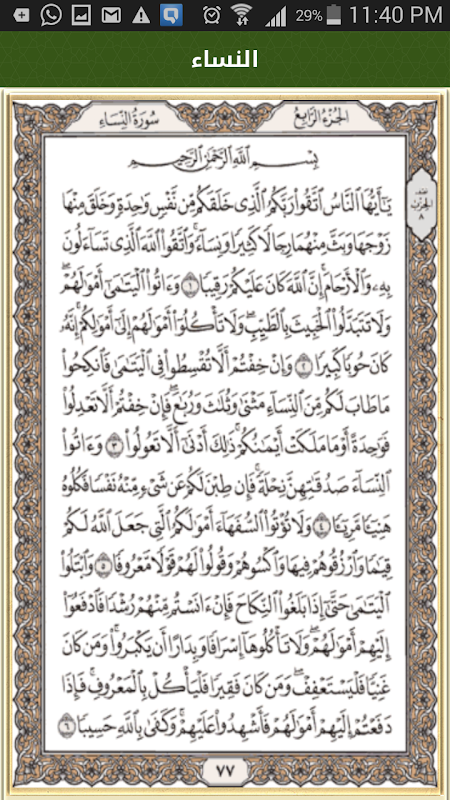 29% 11:40 PM
النساء
سُورَةُ النِّسَاءِ
الجُزْءُ الرَّابِعُ
بِسْمِ اللَّهِ الرَّحْمَٰنِ الرَّحِيمِ
يَٰٓأَيُّهَا ٱلنَّاسُ ٱتَّقُوا۟ رَبَّكُمُ ٱلَّذِى خَلَقَكُم مِّن نَّفْسٍ وَٰحِدَةٍ وَخَلَقَ مِنْهَا
زَوْجَهَا وَبَثَّ مِنْهُمَا رِجَالًا كَثِيرًا وَنِسَآءً ۚ وَٱتَّقُوا۟ ٱللَّهَ ٱلَّذِى تَسَآءَلُونَ
بِهِۦ وَٱلْأَرْحَامَ ۚ إِنَّ ٱللَّهَ كَانَ عَلَيْكُمْ رَقِيبًا ١ وَءَاتُوا۟ ٱلْيَتَٰمَىٰٓ أَمْوَٰلَهُمْ ۖ
وَلَا تَتَبَدَّلُوا۟ ٱلْخَبِيثَ بِٱلطَّيِّبِ ۖ وَلَا تَأْكُلُوٓا۟ أَمْوَٰلَهُمْ إِلَىٰٓ أَمْوَٰلِكُمْ ۚ إِنَّهُۥ
كَانَ حُوبًا كَبِيرًا ٢ وَإِنْ خِفْتُمْ أَلَّا تُقْسِطُوا۟ فِى ٱلْيَتَٰمَىٰ فَٱنكِحُوا۟
مَا طَابَ لَكُم مِّنَ ٱلنِّسَآءِ مَثْنَىٰ وَثُلَٰثَ وَرُبَٰعَ ۖ فَإِنْ خِفْتُمْ أَلَّا تَعْدِلُوا۟
فَوَٰحِدَةً أَوْ مَا مَلَكَتْ أَيْمَٰنُكُمْ ۚ ذَٰلِكَ أَدْنَىٰٓ أَلَّا تَعُولُوا۟ ٣ وَءَاتُوا۟
ٱلنِّسَآءَ صَدُقَٰتِهِنَّ نِحْلَةً ۚ فَإِن طِبْنَ لَكُمْ عَن شَىْءٍ مِّنْهُ نَفْسًا فَكُلُوهُ
هَنِيٓـًٔا مَّرِيٓـًٔا ٤ وَلَا تُؤْتُوا۟ ٱلسُّفَهَآءَ أَمْوَٰلَكُمُ ٱلَّتِى جَعَلَ ٱللَّهُ لَكُمْ
قِيَٰمًا وَٱرْزُقُوهُمْ فِيهَا وَٱكْسُوهُمْ وَقُولُوا۟ لَهُمْ قَوْلًا مَّعْرُوفًا ٥ وَٱبْتَلُوا۟
ٱلْيَتَٰمَىٰ حَتَّىٰٓ إِذَا بَلَغُوا۟ ٱلنِّكَاحَ فَإِنْ ءَانَسْتُم مِّنْهُمْ رُشْدًا فَٱدْفَعُوٓا۟
إِلَيْهِمْ أَمْوَٰلَهُمْ ۖ وَلَا تَأْكُلُوهَآ إِسْرَافًا وَبِدَارًا أَن يَكْبَرُوا۟ ۚ وَمَن كَانَ
غَنِيًّا فَلْيَسْتَعْفِفْ ۖ وَمَن كَانَ فَقِيرًا فَلْيَأْكُلْ بِٱلْمَعْرُوفِ ۚ فَإِذَا
دَفَعْتُمْ إِلَيْهِمْ أَمْوَٰلَهُمْ فَأَشْهِدُوا۟ عَلَيْهِمْ ۚ وَكَفَىٰ بِٱللَّهِ حَسِيبًا ٦
٧٧